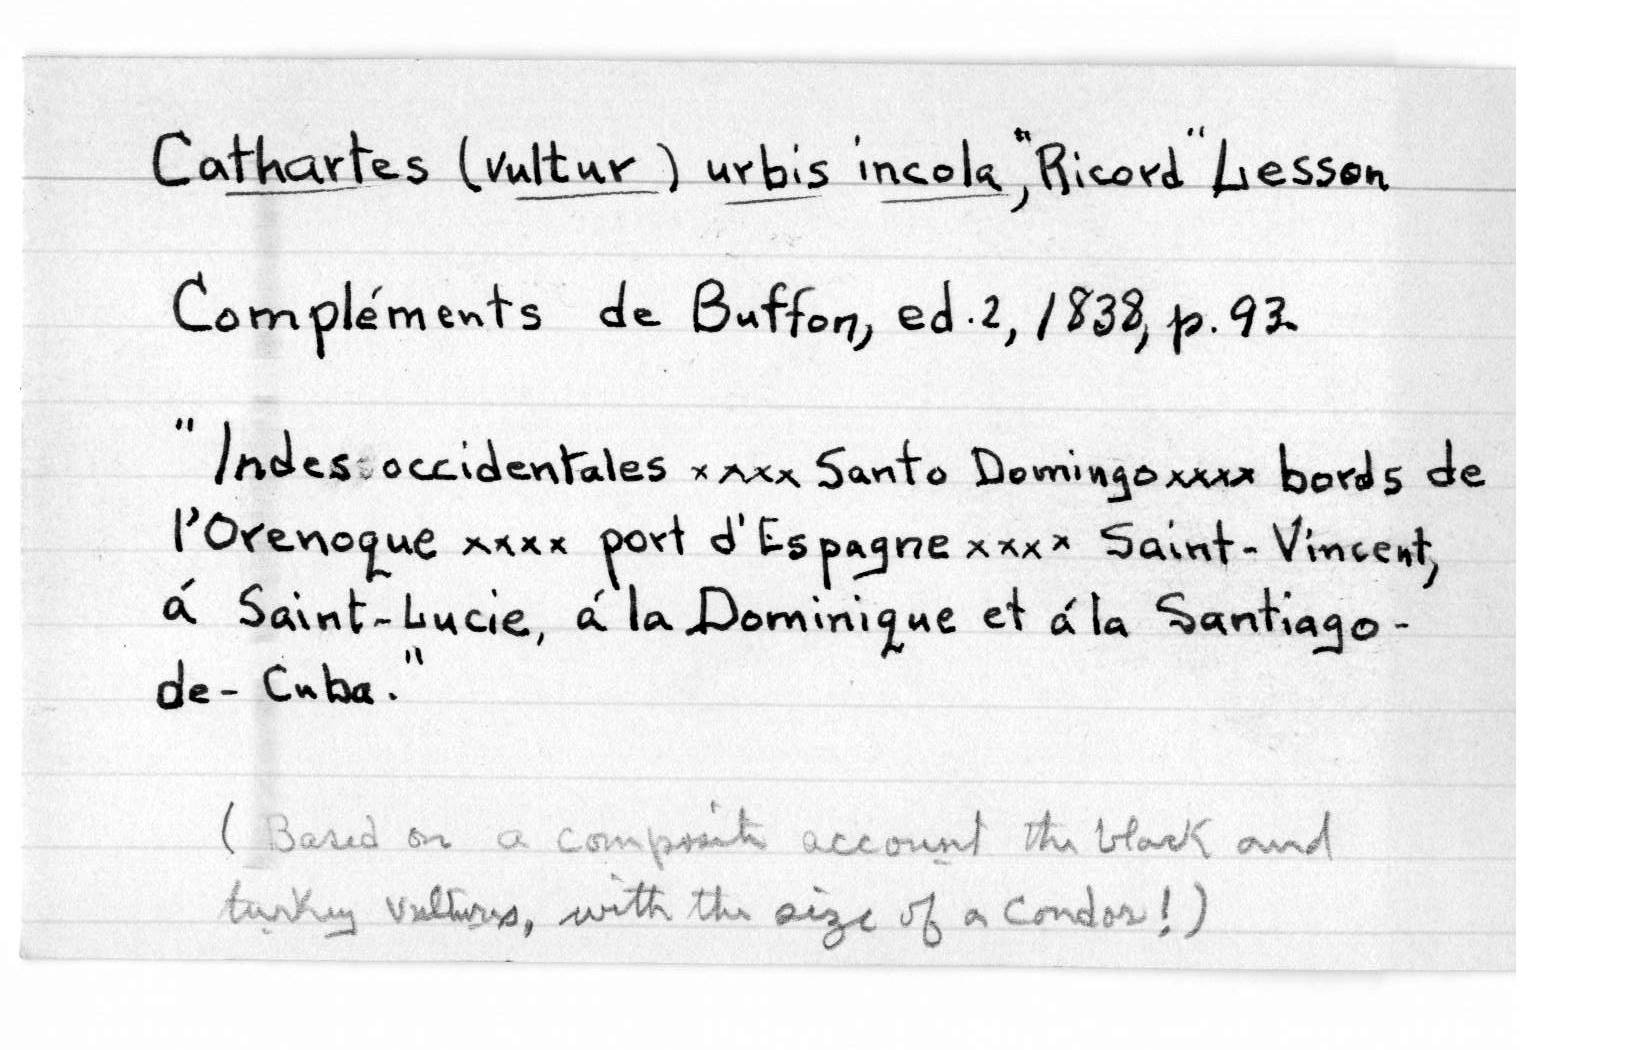 Cathartes (vultur) urbis incola, "Ricord" Lesson
Compléments de Buffon, ed. 2, 1838, p. 93
"Indes occidentales xxxx Santo Domingo xxxx bords de
l'Orenoque xxxx port d'Espagne xxxx Saint-Vincent,
á Saint-Lucie, á la Dominique et á la Santiago-
de-Cuba."
(Based on a composite account the black and
turkey vultures, with the size of a Condor!)